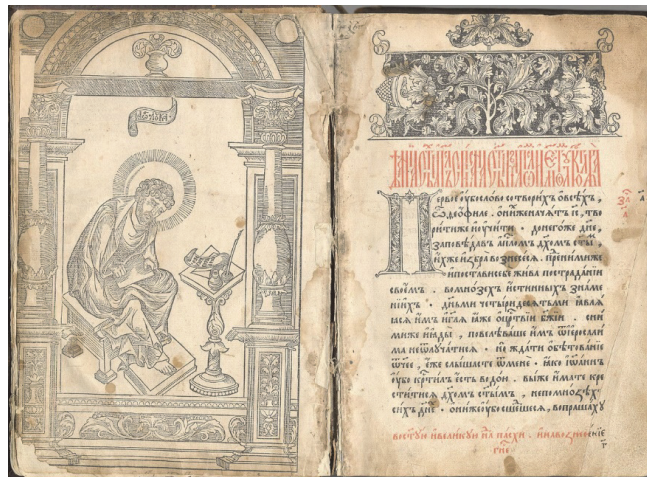 Первое ѹбо слово сотворихъ ѡвсѣхъ,
ѽ деѡфиле. ѡнихже начатъ і҃с, тво
рити же и ѹчити. донегоже дне,
заповѣдавъ апⷭ҇лом дх҃омъ ст҃ы,
ихже избра вознесеся. пренимиже
ипостависебе жива пострадании
своемъ. вомнозех истинныхъ знаме
ниихъ. дньми четыридесятьми являя
ся имъ, игл҃я яже оцрⷭ҇твии бж҃ии. сни
миже иядыи, повелѣваше имъ ѿіерⷭ҇али
ма неѿлучатися. но ждати обѣтованіе
ѿч҃ее, еже слышасте ѿмене. яко иѡаннъ
ѹбо крⷭ҇тилъ есть водою. выже имате кре
ститися дх҃омъ ст҃ымъ, непомнозѣх
сихъ дне. ониже ѹбо сшедшеся, вопрашахѹ
востѹю ивеликѹю нⷣ҇лю пасхи. инавознесеніе
гн҃е